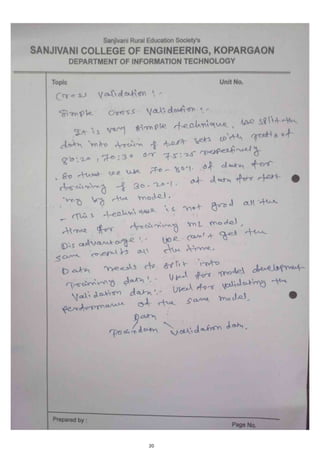 Sanjivani Rural Education Society's
SANJIVANI COLLEGE OF ENGINEERING, KOPARGAON
DEPARTMENT OF INFORMATION TECHNOLOGY
Topic Unit No.
Cross validation :-
Simple cross validation :-
It is very simple technique, we split the
data into train & test sets with ratio of
80:20, 70:30 or 75:25 respectively
. So that we use 70-80% of data for
training & 30-20% of data for test
ing by the model.
- This technique is not good all the
time for training ML model.
Disadvantage :- we can't get the
same results all the time.
Data needs to split into
Training data :- Used for model development
Validation data :- Used for validating the
performance of the same model.
Data
validation data.
Prepared by :
Page No.
20